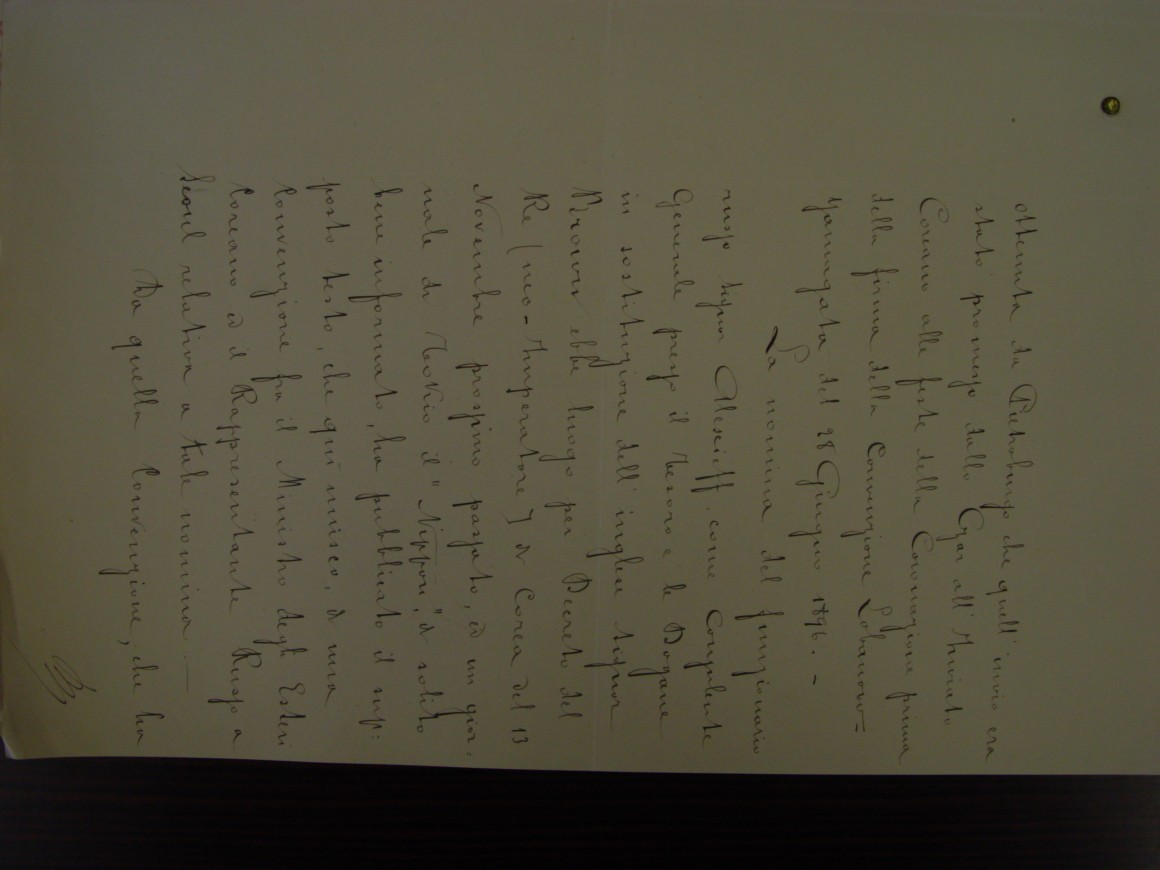 ottenuta da Pietroburgo che quell'invio era
stato promesso dallo Czar all'Inviato
Coreano alle feste della Coronazione prima
della firma della Convenzione Lobanow=
Yamagata del 28 Giugno 1896. -
La nomina del funzionario
russo signor Alexeieff come Consulente
Generale presso il Tesoro e le Dogane
in sostituzione dell'inglese signor
Brown ebbe luogo per Decreto del
Re (neo-Imperatore) di Corea del 13
Novembre prossimo passato, ed un gior:
nale di Tokio il "Nippon", di solito
bene informato, ha pubblicato il sup:
posto testo, che quì unisco, di una
Convenzione fra il Ministro degli Esteri
Coreano ed il Rappresentante Russo a
Séoul relativa a tale nomina. —
Da quella Convenzione, che ha